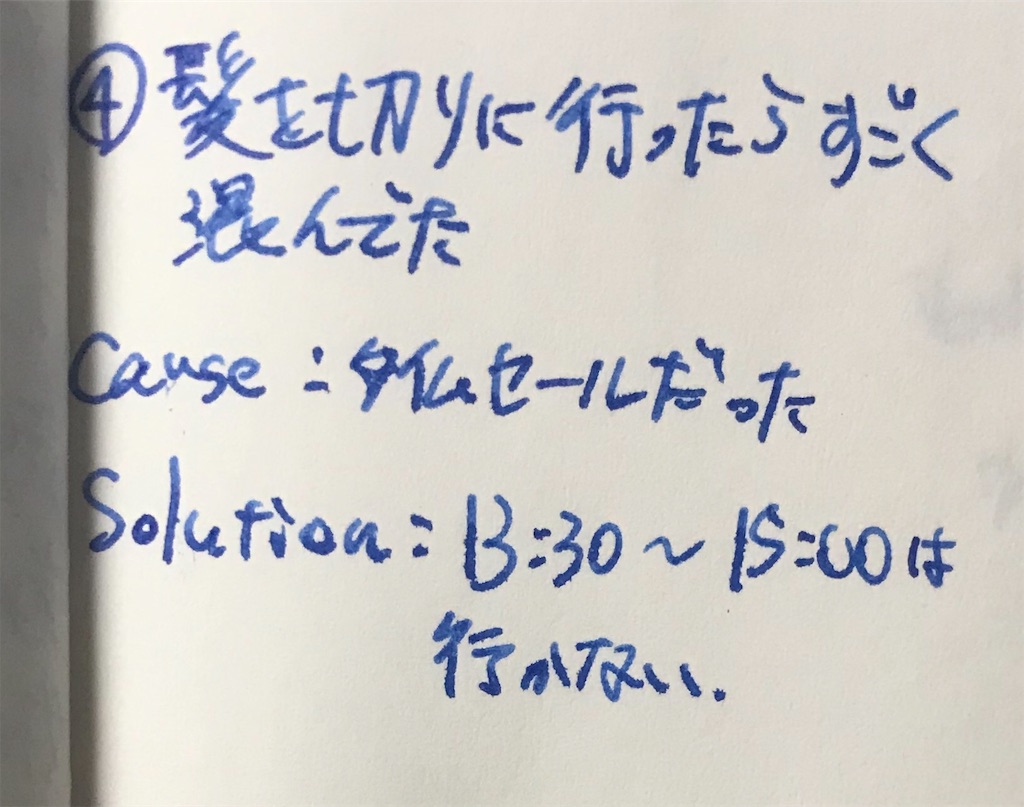 ④髪を切りに行ったらすごく
混んでた
Cause:タイムセールだった
Solution:13:30～15:00は
行かない.